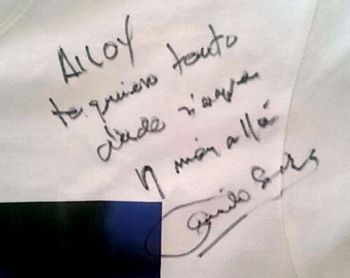 AiLOY
te quiero tanto
desde siempre
y más allá
Camilo Sesto